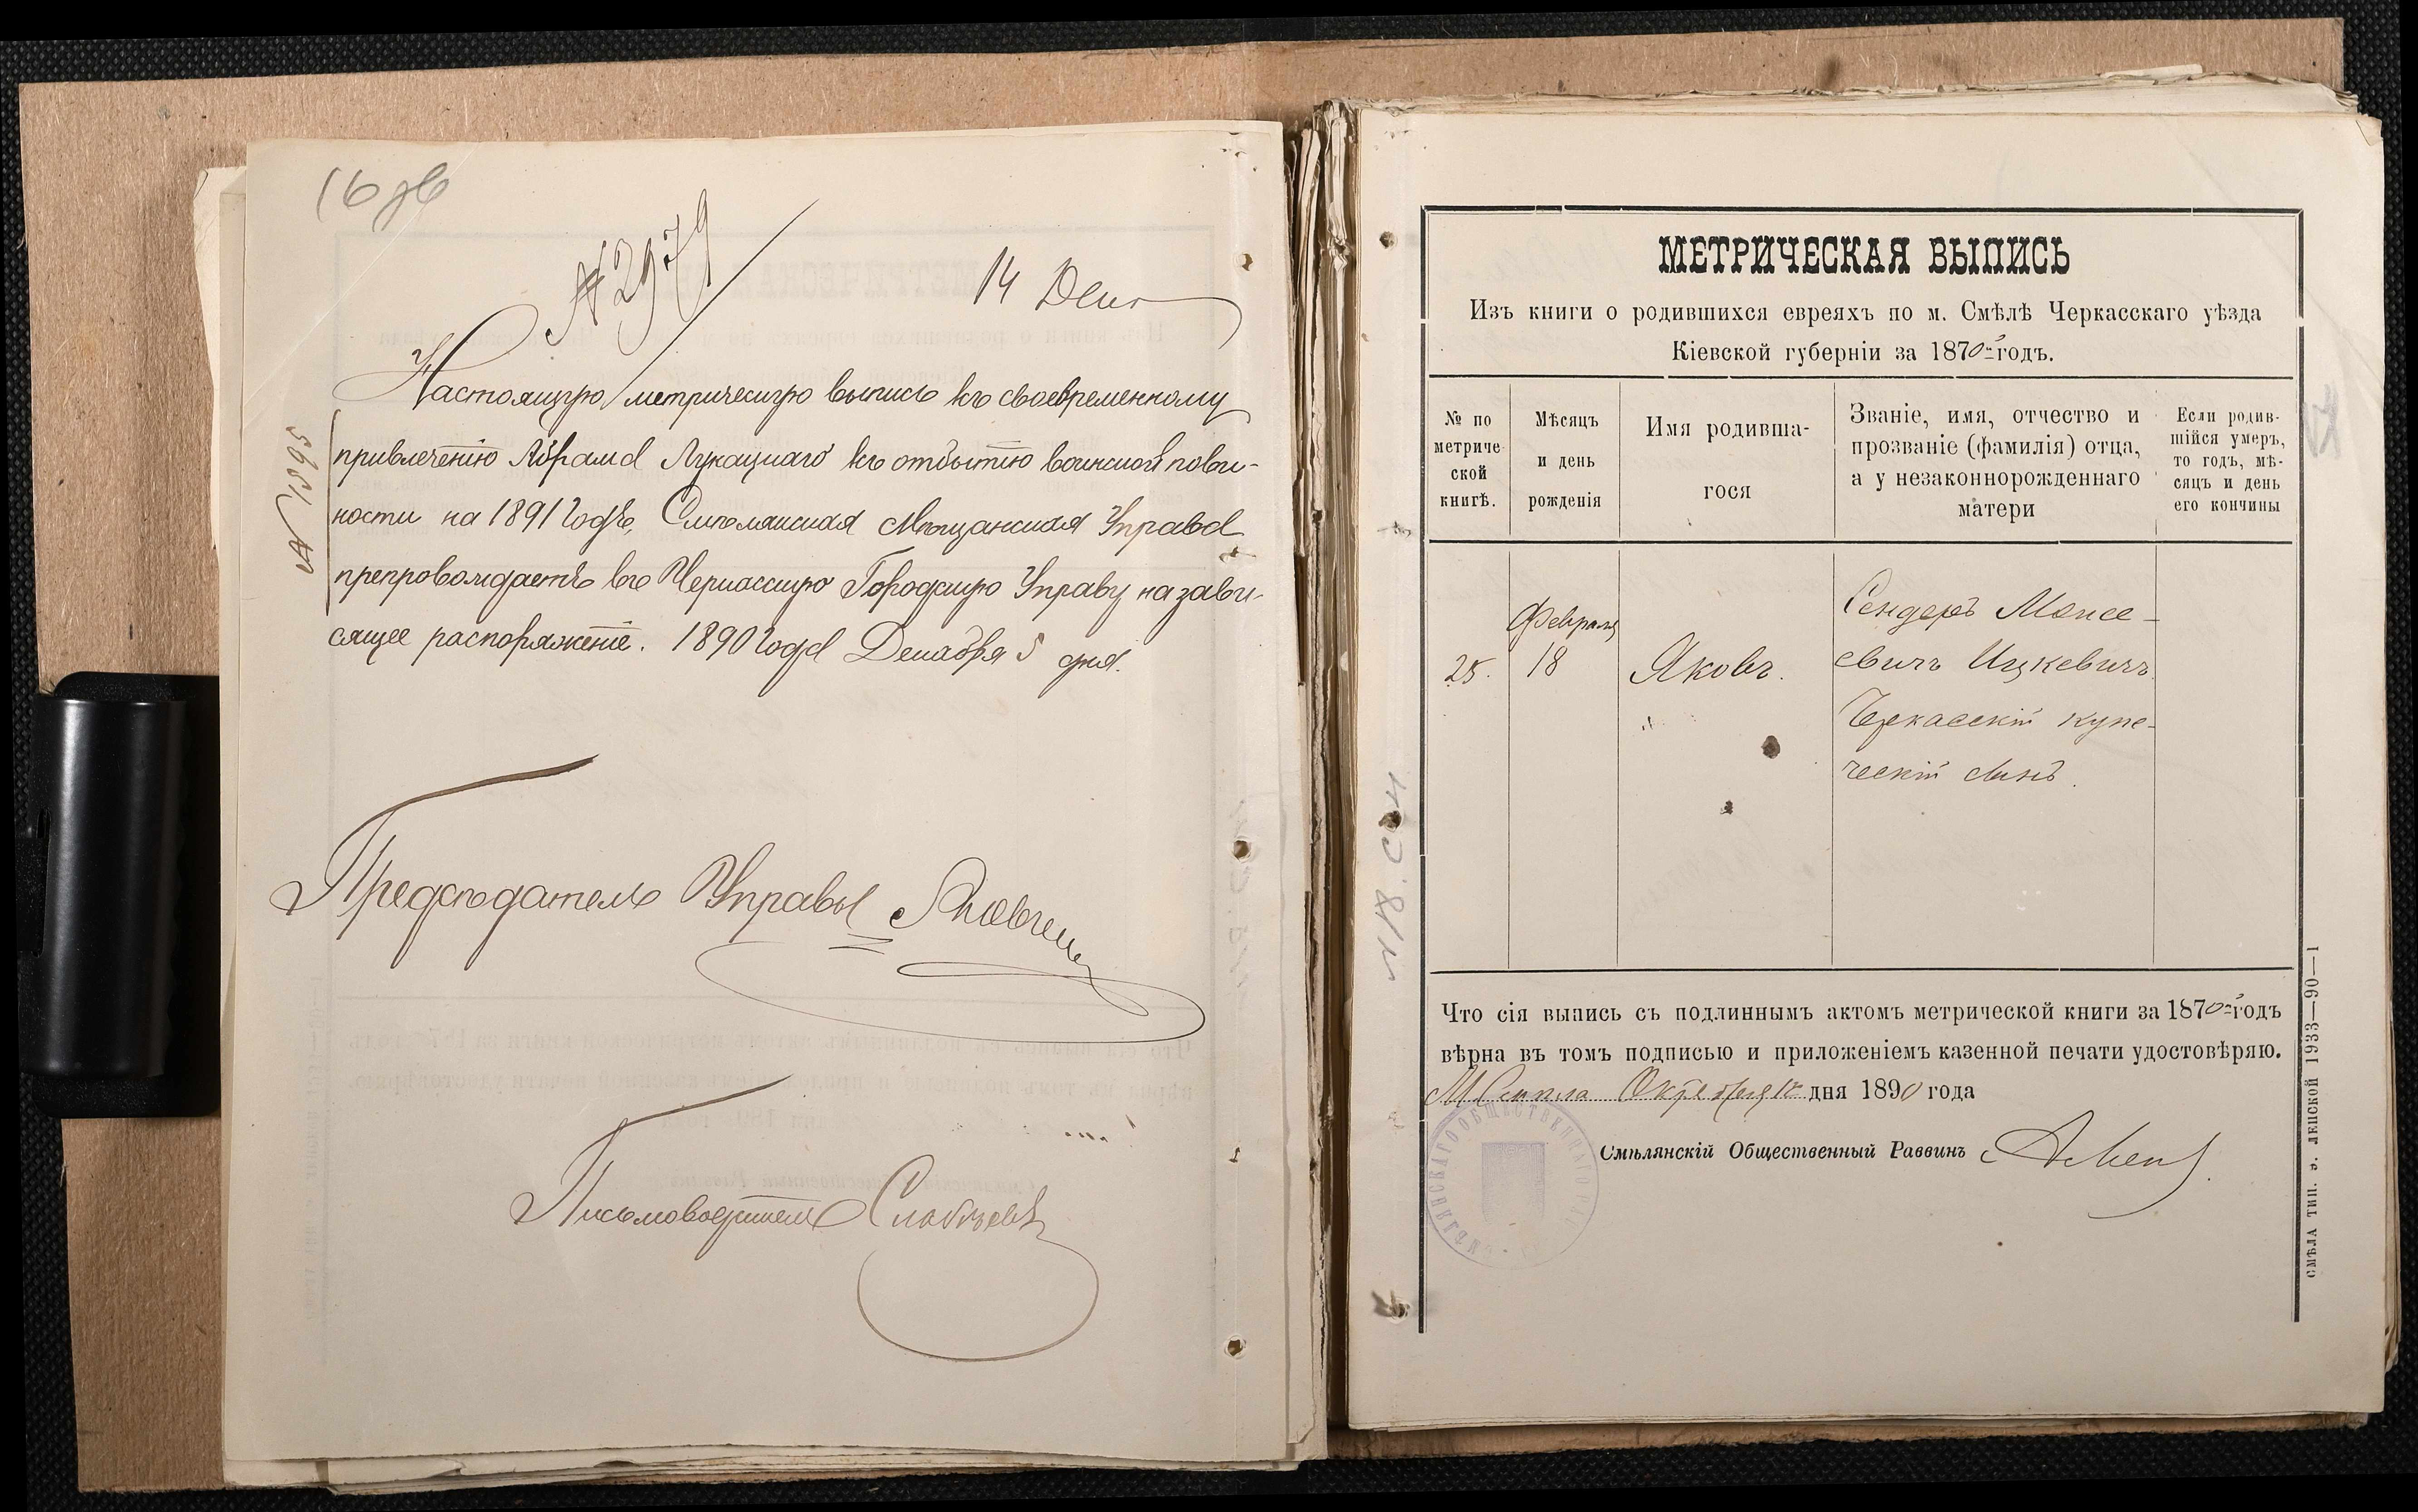 16 об
№ 2979
14 Дек
Настоящую метрическую выпись къ своевременному
привлеченію Абрама Лукацкаго къ отбытію воинской пови-
ности на 1891 годъ, Смѣлянская Мѣщанская Управа
препровождаетъ въ Черкасскую Городскую Управу на зави-
сящее распоряженіе. 1890 года Декабря 5 дня.
№ 1595
Предсѣдатель Управы Яковченко
Письмоводитель
МЕТРИЧЕСКАЯ ВЫПИСЬ
Изъ книги о родившихся евреяхъ по м. Смѣлѣ Черкасскаго уѣзда
Кіевской губерніи за 1870-й годъ.
№ по метриче ской книгѣ.
Мѣсяцъ и день рожденія
Имя родивша- гося
Званіе, имя, отчество и прозваніе (фамилія) отца, а у незаконнорожденнаго матери
Если родив- шійся умеръ, то годъ, мѣ- сяцъ и день его кончины
25.
Февраля
18
Яковъ.
Сендеръ Моисе-
евичъ Ицкевичъ
Черкасскій купе-
ческій сынъ.
Что сія выпись съ подлиннымъ актомъ метрической книги за 1870-й годъ
вѣрна въ томъ подписью и приложеніемъ казенной печати удостовѣряю.
М Смѣла Октября дня 1890 года
Смѣлянскій Общественный Раввинъ
СМѢЛЯНСКАГО ОБЩЕСТВЕННАГО
СМѢЛА ТИП. Э. ЛЕПСКОЙ 1933—90—1